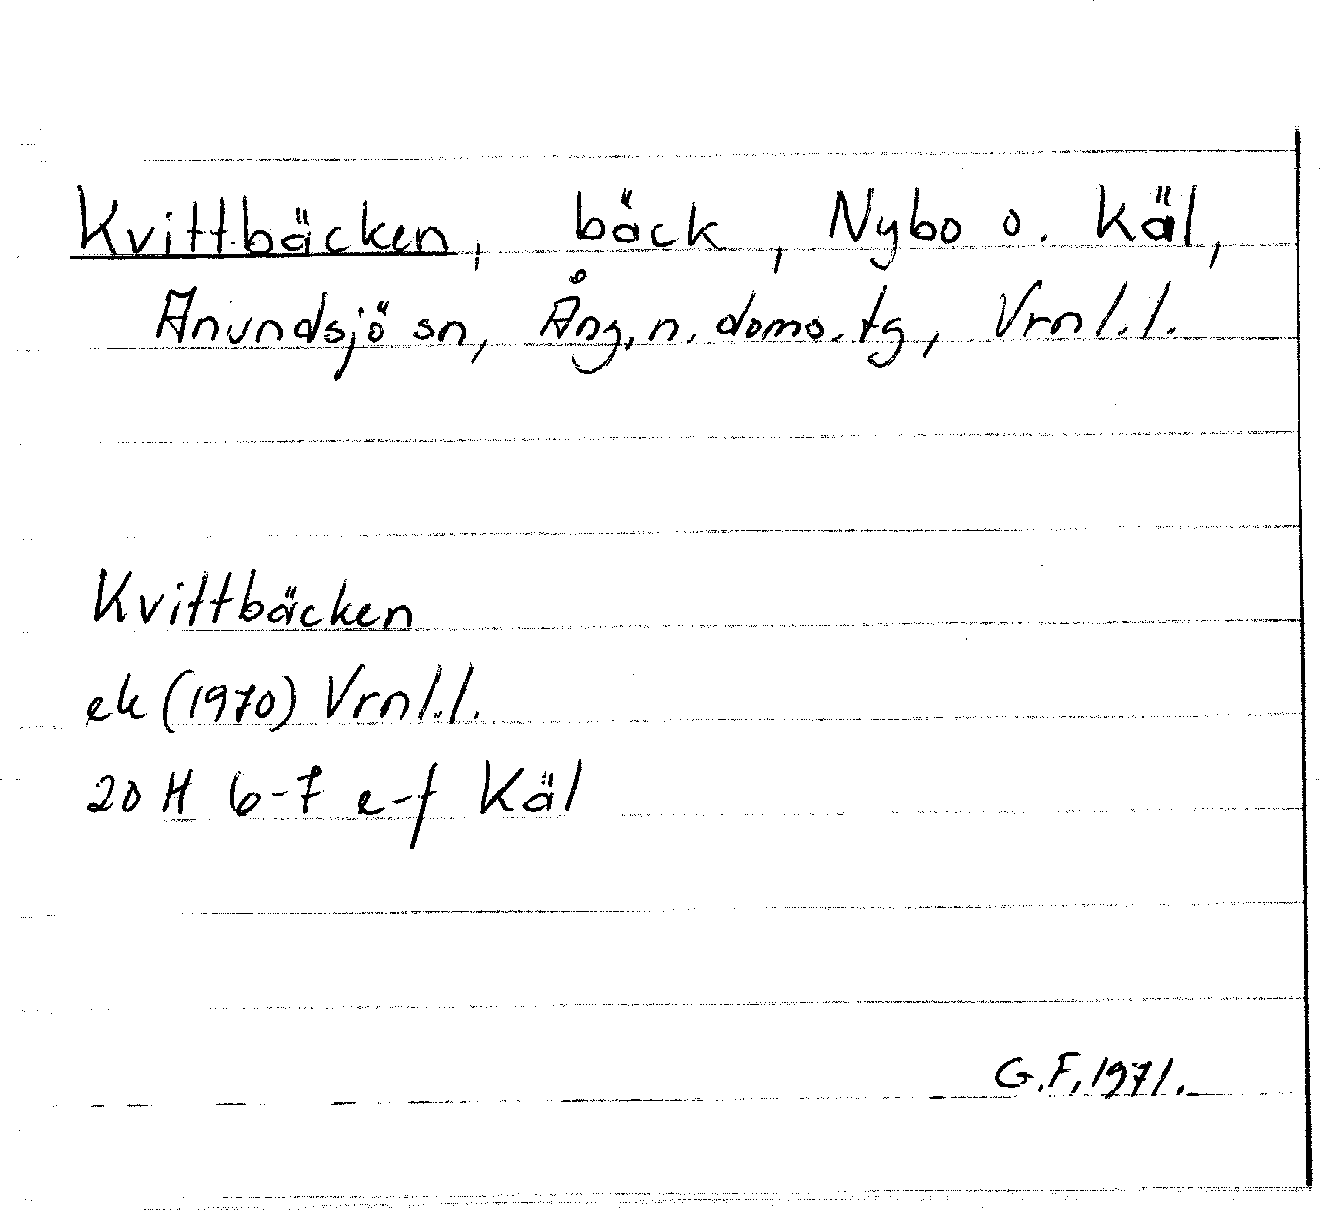 Kvittbäcken, bäck, Nybo o. Käl,
Anundsjö sn, Ång. n. doms. tg, Vrnl. l.
Kvittbäcken
ek (1970) Vrnl. l.
20 H 6-7 e-f Käl
G.F. 1971.